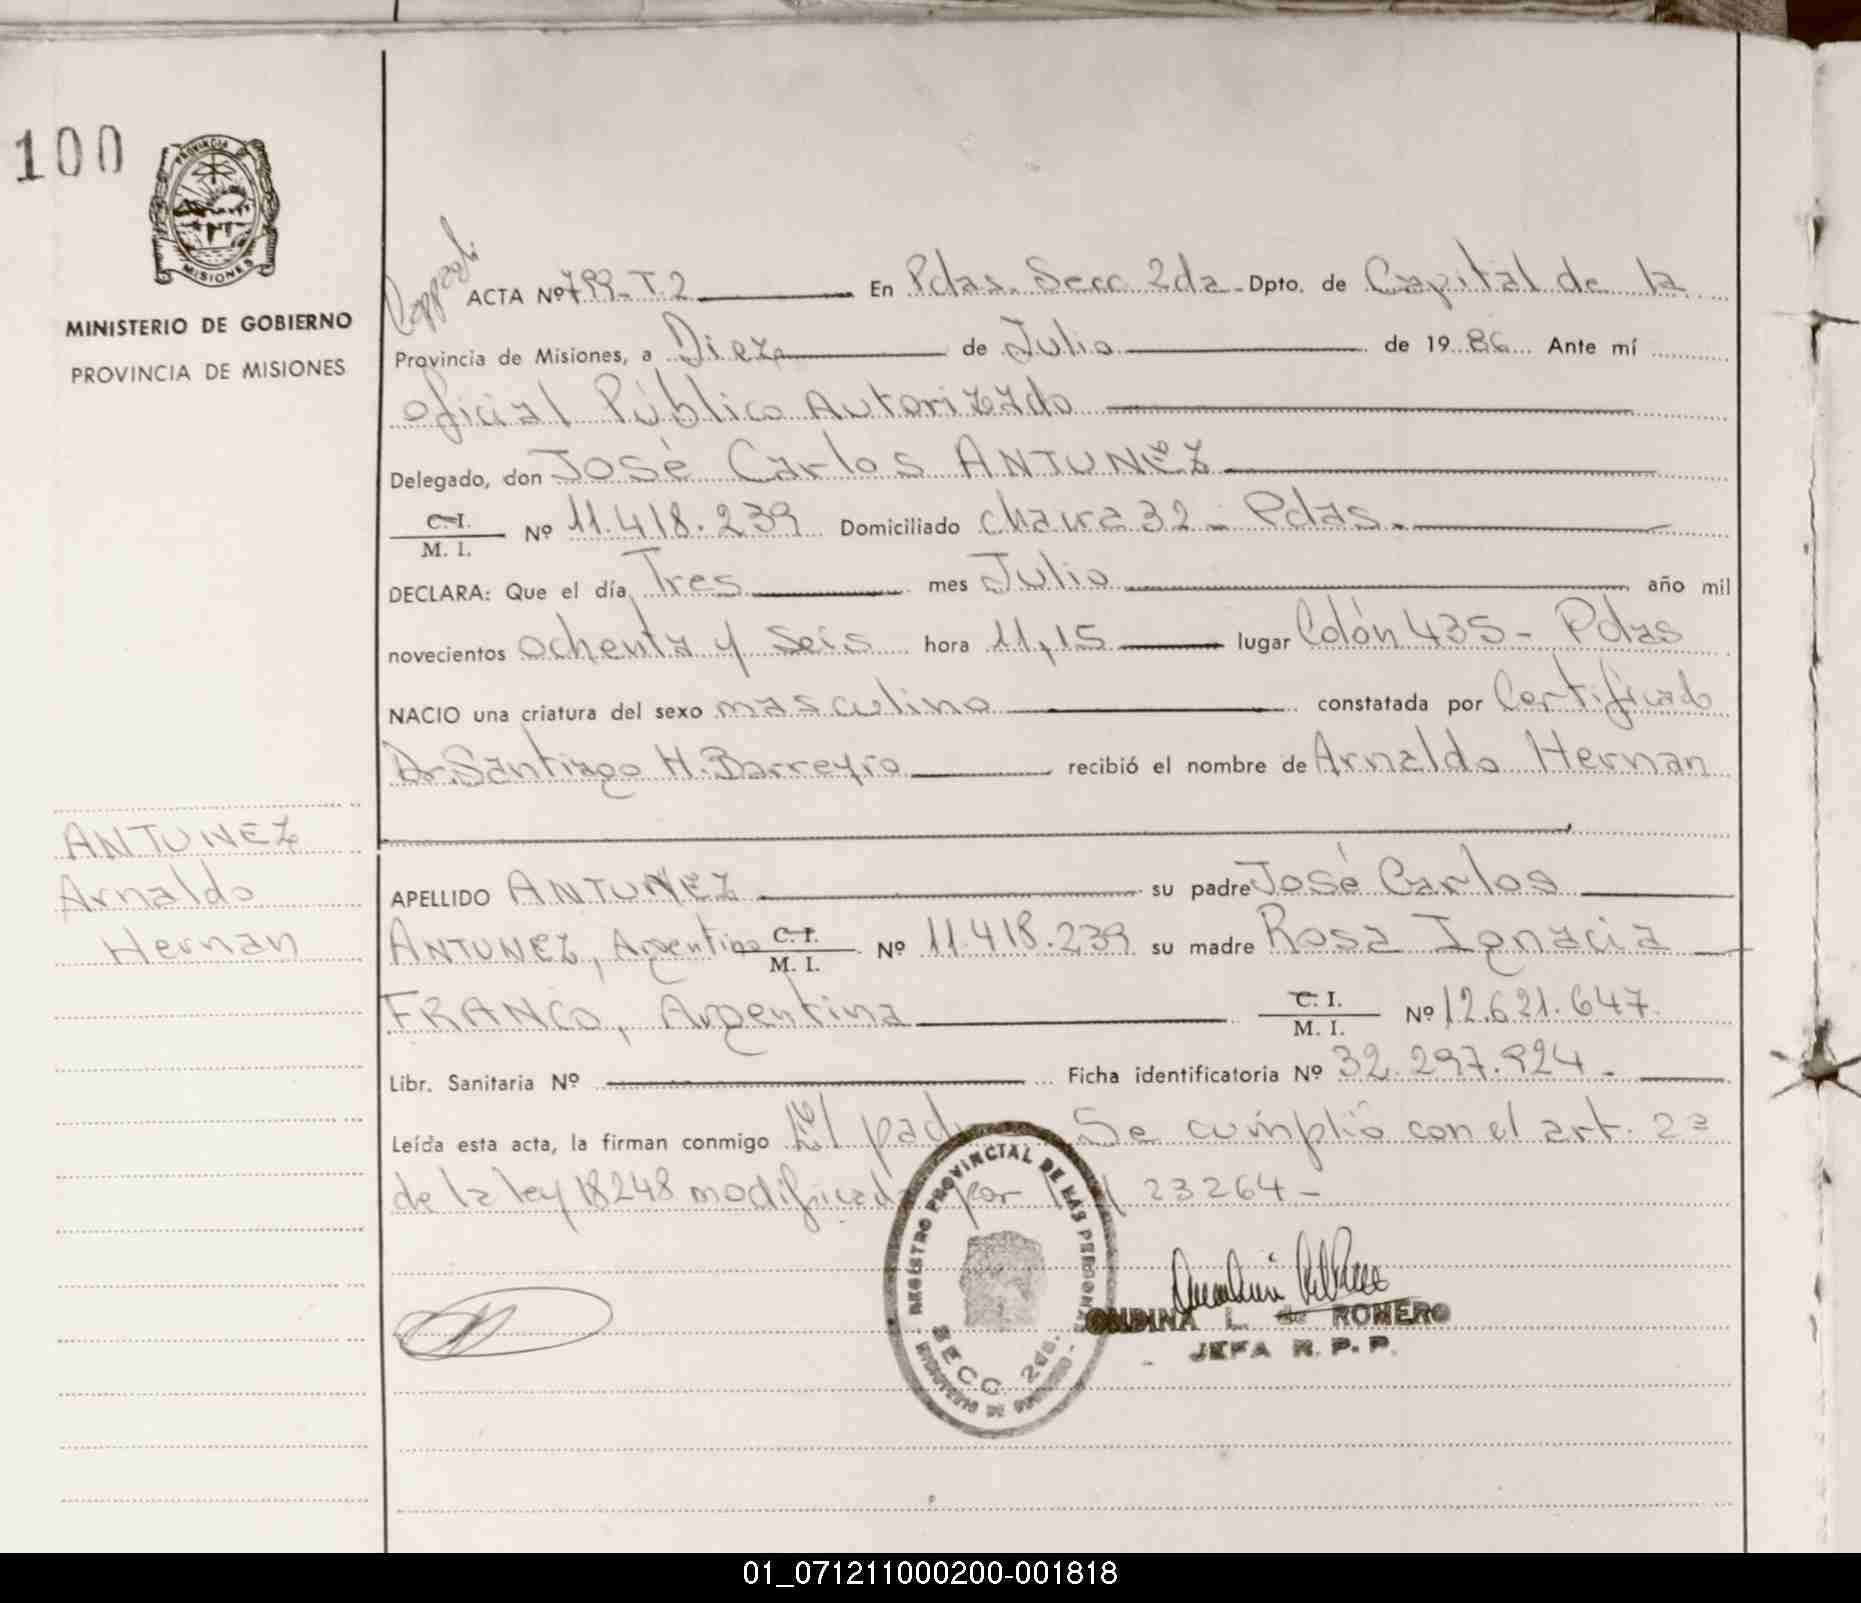 100
PROVINCIA DE
MISIONES
MINISTERIO DE GOBIERNO
PROVINCIA DE MISIONES
ANTUNEZ
Arnaldo
Hernan
ACTA Nº 799-T.2 En Pdas. Secc 2da Dpto. de Capital de la
Provincia de Misiones, a Diez de Julio de 1986 Ante mí
oficial Público Autorizado
Delegado, don José Carlos ANTUNEZ
C.I.
M. I. Nº 11.418.239 Domiciliado chacra 32 - Pdas.
DECLARA: Que el día Tres mes Julio año mil
novecientos ochenta y seis hora 11,15 lugar Colón 435 - Pdas
NACIO una criatura del sexo masculino constatada por Certificado
Dr. Santiago H. Barreyro recibió el nombre de Arnaldo Hernan
APELLIDO ANTUNEZ su padre José Carlos
ANTUNEZ, Argentino C.I. M. I. Nº 11.418.239 su madre Rosa Ignacia
FRANCO, Argentina C. I. M. I. Nº 12.621.647.
Libr. Sanitaria Nº Ficha identificatoria Nº 32.297.924 -
Leída esta acta, la firman conmigo El padre Se cumplió con el art. 2º
de la ley 18248 modificada por 23264 -
REGISTRO PROVINCIAL DE LAS PERSONAS
SECC 2da.
MINISTERIO DE GOBIERNO
ONDINA L. de ROMERO
JEFA R. P. P.
01_071211000200-001818